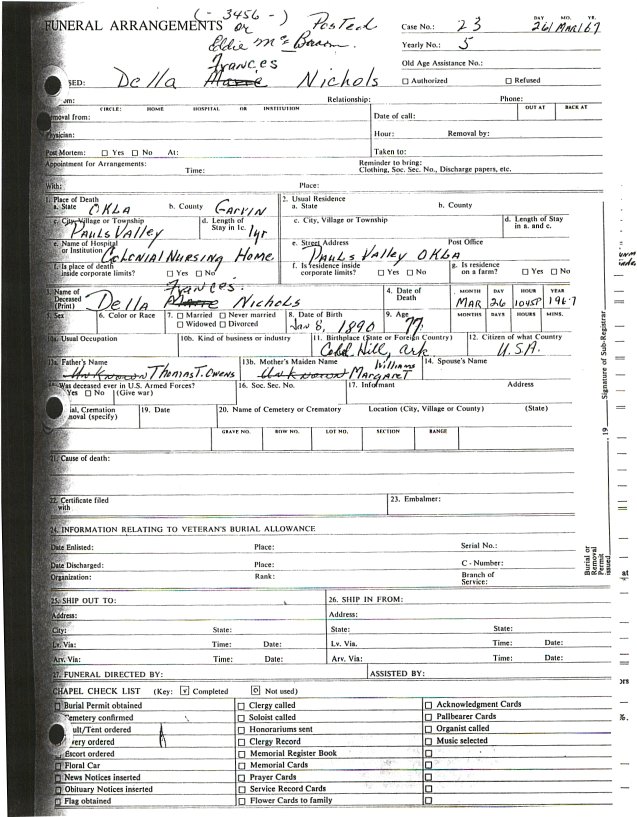 FUNERAL ARRANGEMENTS (- 3456 -) or Posted
Eddie Mc
Case No.: 23 DAY MO. YR. 26 MAR 67
Yearly No.: 5
Old Age Assistance No.:
SED: Della Frances Marie Nichols ☐ Authorized ☐ Refused
om: Relationship: Phone:
CIRCLE: HOME HOSPITAL OR INSTITUTION OUT AT BACK AT
moval from: Date of call:
hysician: Hour: Removal by:
Post Mortem: ☐ Yes ☐ No At: Taken to:
Appointment for Arrangements: Time: Reminder to bring:
Clothing, Soc. Sec. No., Discharge papers, etc.
With: Place:
1. Place of Death 2. Usual Residence
a. State OKLA b. County Garvin a. State b. County
c. City, Village or Township Pauls Valley d. Length of Stay in 1c. 1yr c. City, Village or Township d. Length of Stay in a. and c.
e. Name of Hospital or Institution Colonial Nursing Home e. Street Address Post Office Pauls Valley OKla
f. Is place of death inside corporate limits? ☐ Yes ☐ No f. Is residence inside corporate limits? ☐ Yes ☐ No g. Is residence on a farm? ☐ Yes ☐ No
3. Name of Deceased (Print) Della Frances Marie Nichols 4. Date of Death MONTH DAY HOUR YEAR
MAR 26 1045P 1967
5. Sex 6. Color or Race 7. ☐ Married ☐ Never married ☐ Widowed ☐ Divorced 8. Date of Birth Jan 8, 1890 9. Age 77 MONTHS DAYS HOURS MINS.
10a. Usual Occupation 10b. Kind of business or industry 11. Birthplace (State or Foreign Country) Hill, Ark 12. Citizen of what Country U.S.A.
13a. Father's Name Unknown Thomas T. Owens 13b. Mother's Maiden Name Unknown Margaret Williams 14. Spouse's Name
Was deceased ever in U.S. Armed Forces? 16. Soc. Sec. No. 17. Informant Address
Yes ☐ No (Give war)
ial, Cremation 19. Date 20. Name of Cemetery or Crematory Location (City, Village or County) (State)
noval (specify)
GRAVE NO. ROW NO. LOT NO. SECTION RANGE
21. Cause of death:
22. Certificate filed with 23. Embalmer:
24. INFORMATION RELATING TO VETERAN'S BURIAL ALLOWANCE
Date Enlisted: Place: Serial No.:
Date Discharged: Place: C - Number:
Organization: Rank: Branch of Service:
25. SHIP OUT TO: 26. SHIP IN FROM:
Address: Address:
City: State: State: State:
Lv. Via. Time: Date: Lv. Via. Time: Date:
Arv. Via: Time: Date: Arv. Via: Time: Date:
27. FUNERAL DIRECTED BY: ASSISTED BY:
CHAPEL CHECK LIST (Key: ☑ Completed ☐ Not used)
Burial Permit obtained ☐ Clergy called ☐ Acknowledgment Cards
Cemetery confirmed ☐ Soloist called ☐ Pallbearer Cards
ult/Tent ordered ☐ Honorariums sent ☐ Organist called
very ordered ☐ Clergy Record ☐ Music selected
Escort ordered ☐ Memorial Register Book ☐
☐ Floral Car ☐ Memorial Cards ☐
☐ News Notices inserted ☐ Prayer Cards ☐
☐ Obituary Notices inserted ☐ Service Record Cards ☐
☐ Flag obtained ☐ Flower Cards to family ☐
Signature of Sub-Registrar
, 19
Burial or Removal Permit issued
at